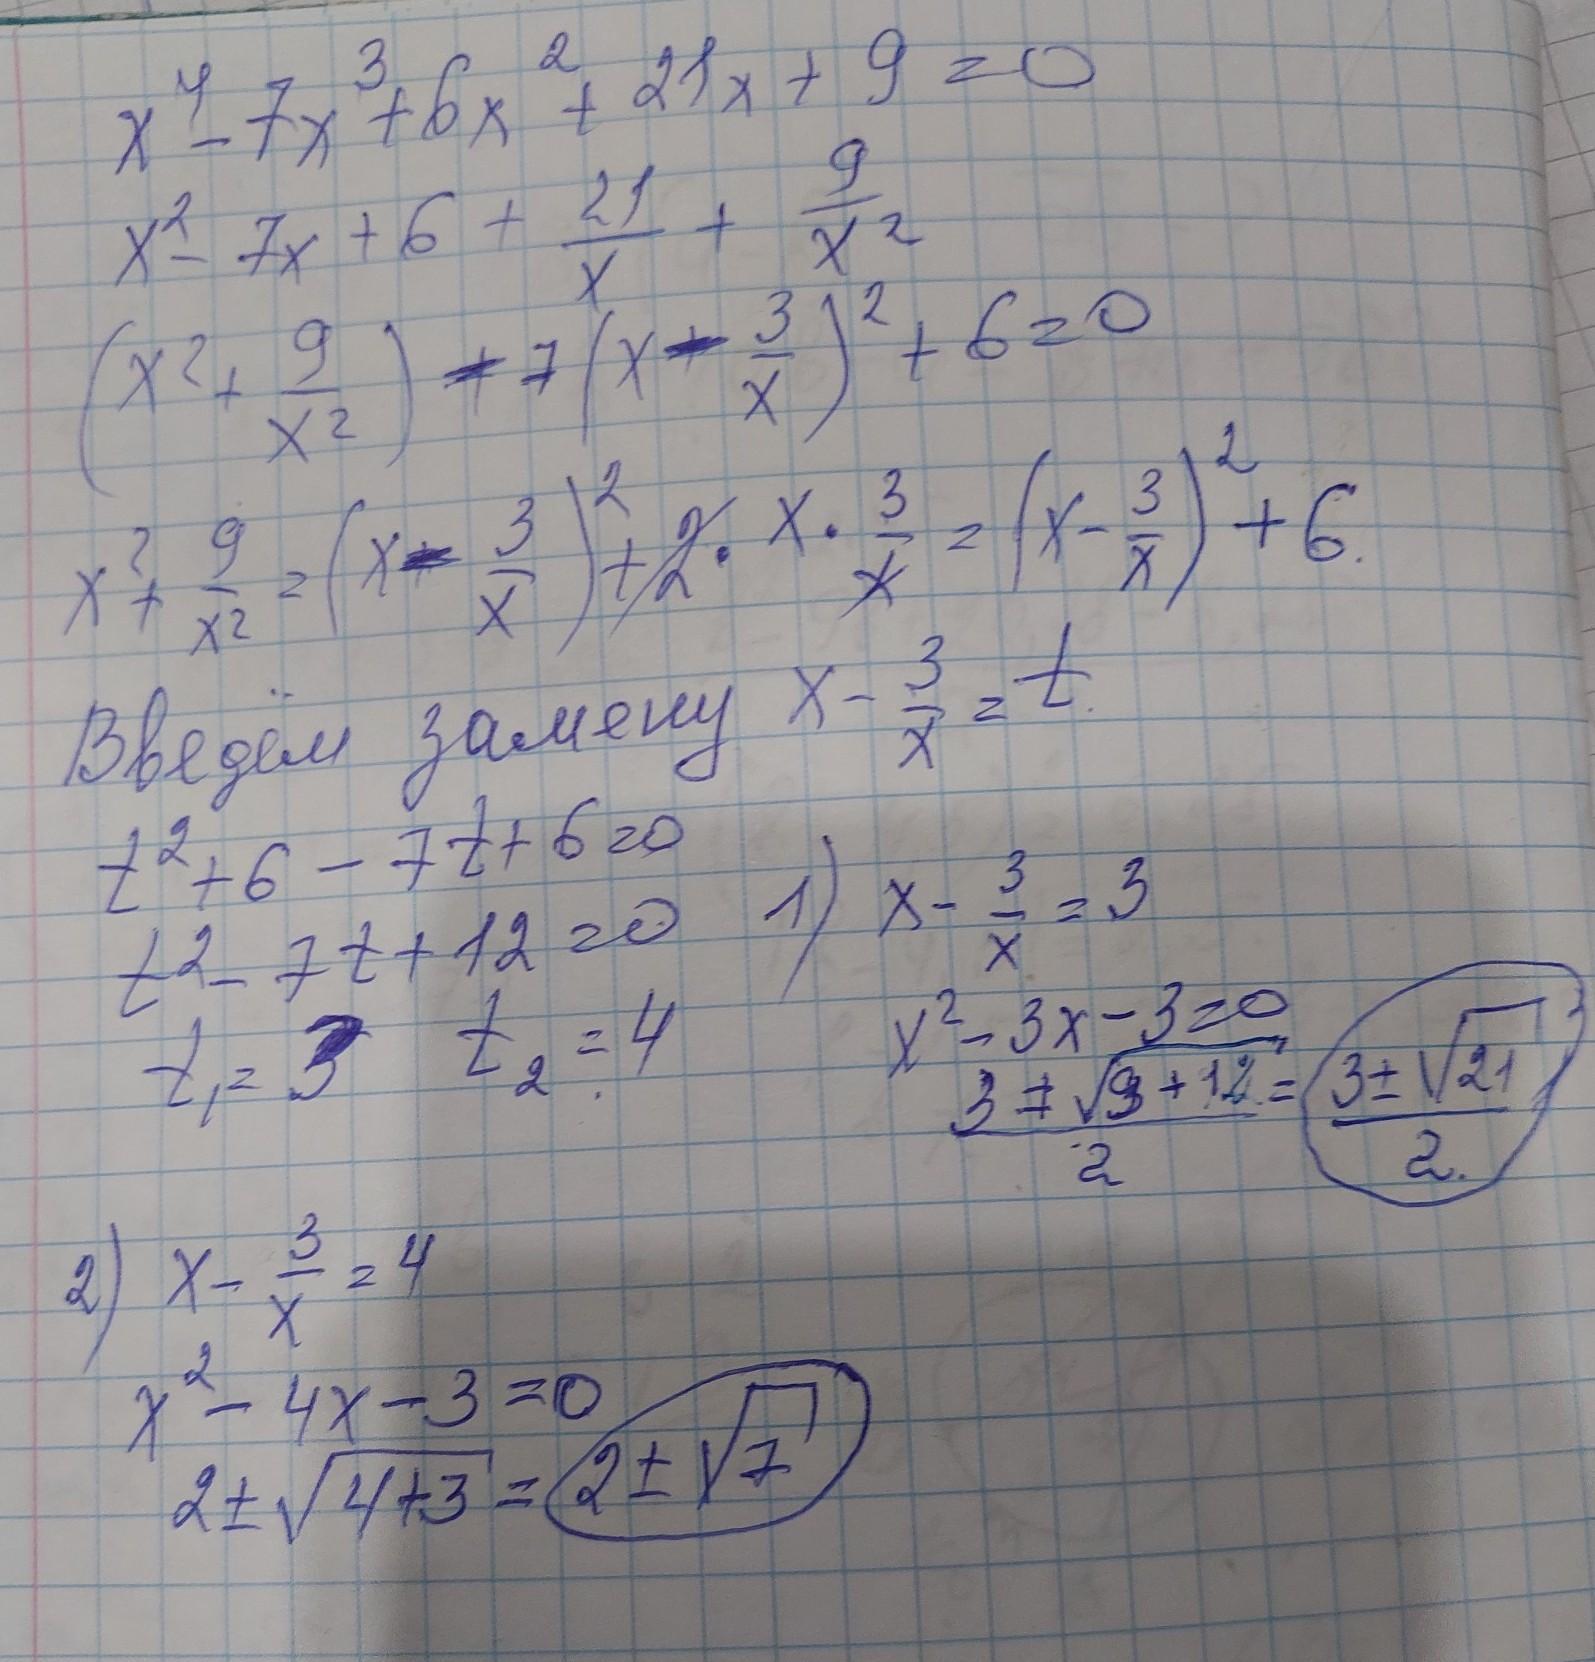 x⁴ - 7x³ + 6x² + 21x + 9 = 0
x² - 7x + 6 + 21/x + 9/x²
(x² + 9/x²) - 7(x - 3/x)² + 6 = 0
x² + 9/x² = (x - 3/x)² + 2 · x · 3/x = (x - 3/x)² + 6.
Введём замену x - 3/x = t.
t² + 6 - 7t + 6 = 0
t² - 7t + 12 = 0
t₁ = 3 t₂ = 4
1) x - 3/x = 3
x² - 3x - 3 = 0
(3 ± √(9 + 12))/2 = (3 ± √21)/2.
2) x - 3/x = 4
x² - 4x - 3 = 0
2 ± √(4+3) = 2 ± √7